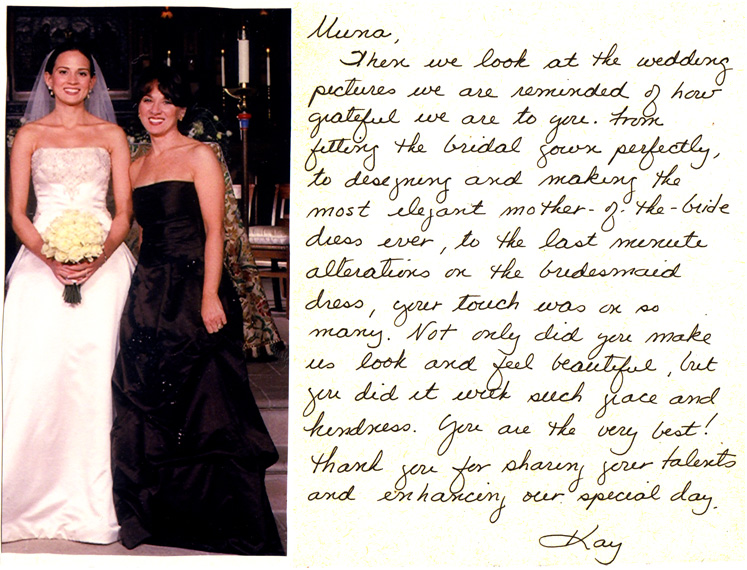 Muna,
When we look at the wedding
pictures we are reminded of how
grateful we are to you. From
fitting the bridal gown perfectly,
to designing and making the
most elegant mother-of-the-bride
dress ever, to the last minute
alterations on the bridesmaid
dress, your touch was on so
many. Not only did you make
us look and feel beautiful, but
you did it with such grace and
kindness. You are the very best!
Thank you for sharing your talents
and enhancing our special day.
Kay